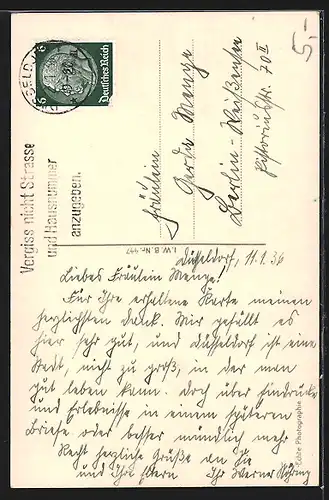 Düsseldorf, 11.1.36
Liebes Fräulein Menge!
Für Ihre erhaltene Karte meinen
herzlichsten Dank. Mir gefällt es
hier sehr gut, und Düsseldorf ist eine
Stadt, nicht zu groß, in der man
gut leben kann. Doch über Eindrücke
und Erlebnisse in einem späteren
Briefe oder besser mündlich mehr
Recht herzliche Grüße an Sie
und Ihre Eltern Ihr Werner
Fräulein
Gerda Menge
Berlin-Weißensee
70 II
Deutsches Reich
6 6
Vergiss nicht Strasse
und Hausnummer
anzugeben.
I.W.B. Nr. 447
Echte Photographie
5,-